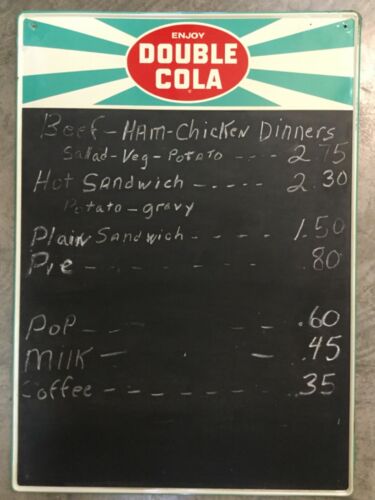 ENJOY
DOUBLE
COLA
Beef-HAM-Chicken Dinners
Sallad-Veg-Potato --- 2.75
Hot Sandwich ---- 2.30
Potato-gravy
Plain Sandwich ---- 1.50
Pie - - - - - - .80
Pop -- - -- .60
Milk - - - .45
Coffee - - - - - - .35